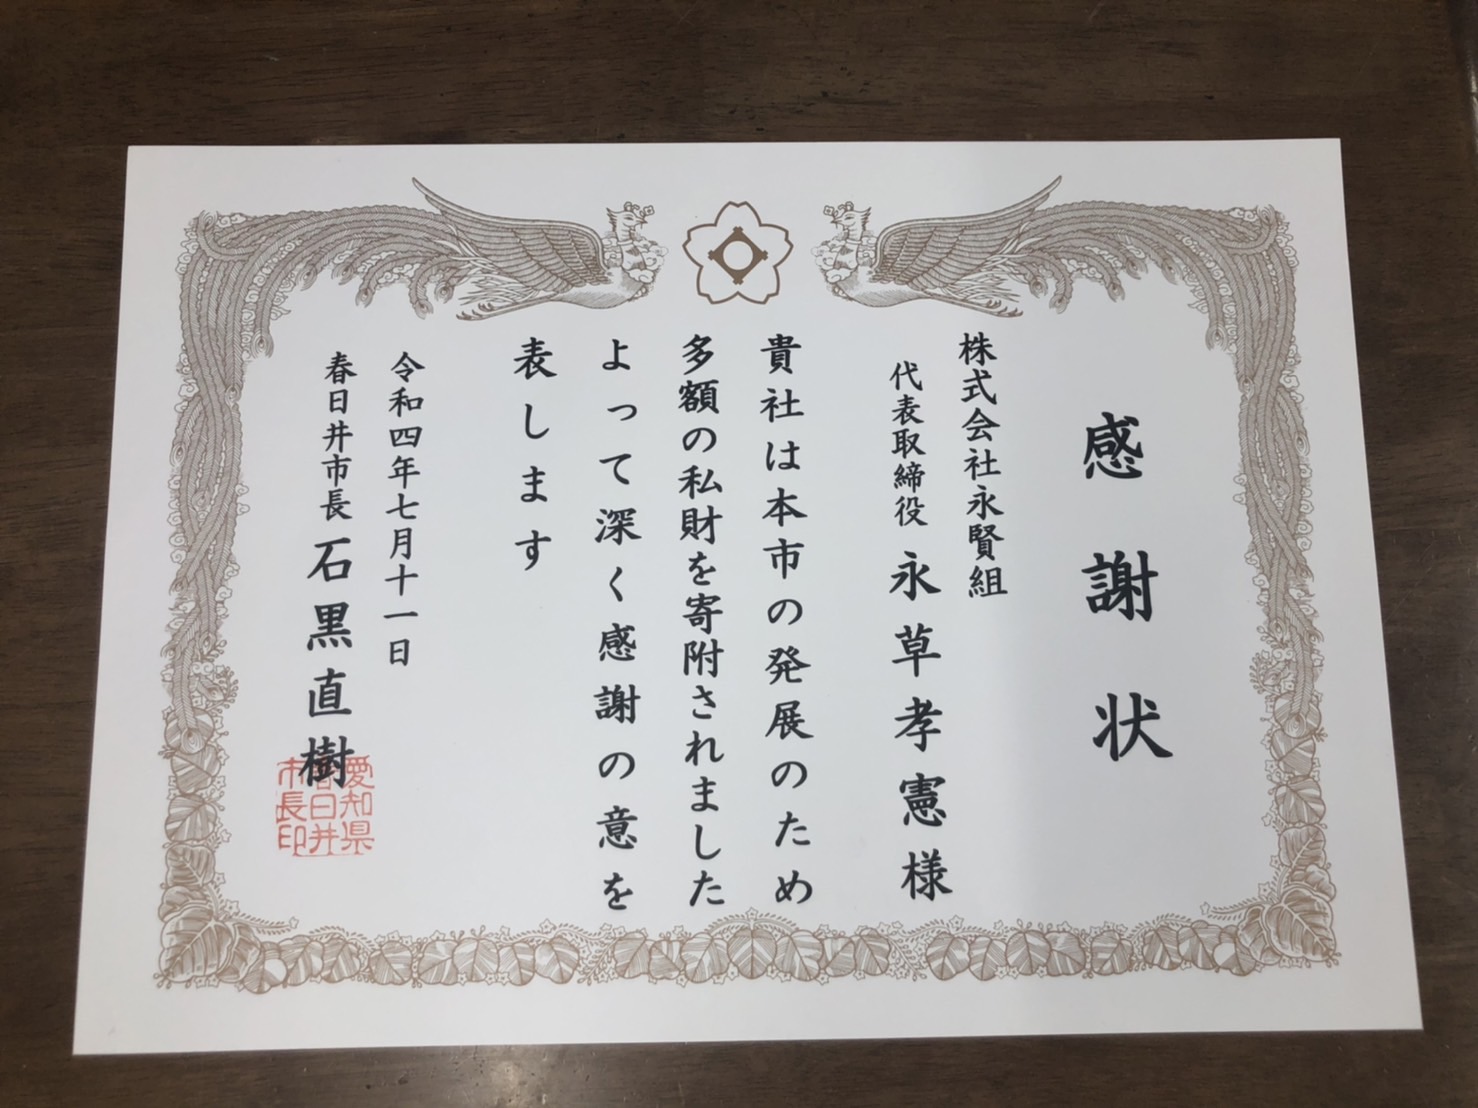 感謝状
株式会社永賢組
代表取締役 永草孝憲様
貴社は本市の発展のため
多額の私財を寄附されました
よって深く感謝の意を
表します
令和四年七月十一日
春日井市長 石黒直樹
愛知県
春日井
市長印